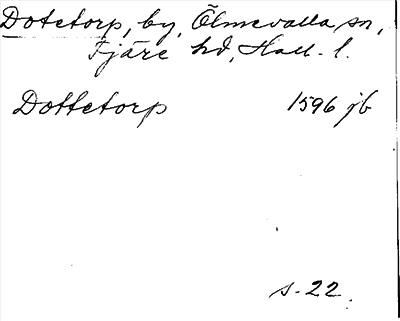 Dotetorp, by, Ölmevalla sn,
Fjäre hd, Hall. l.
Dottetorp 1596 jb
s. 22.